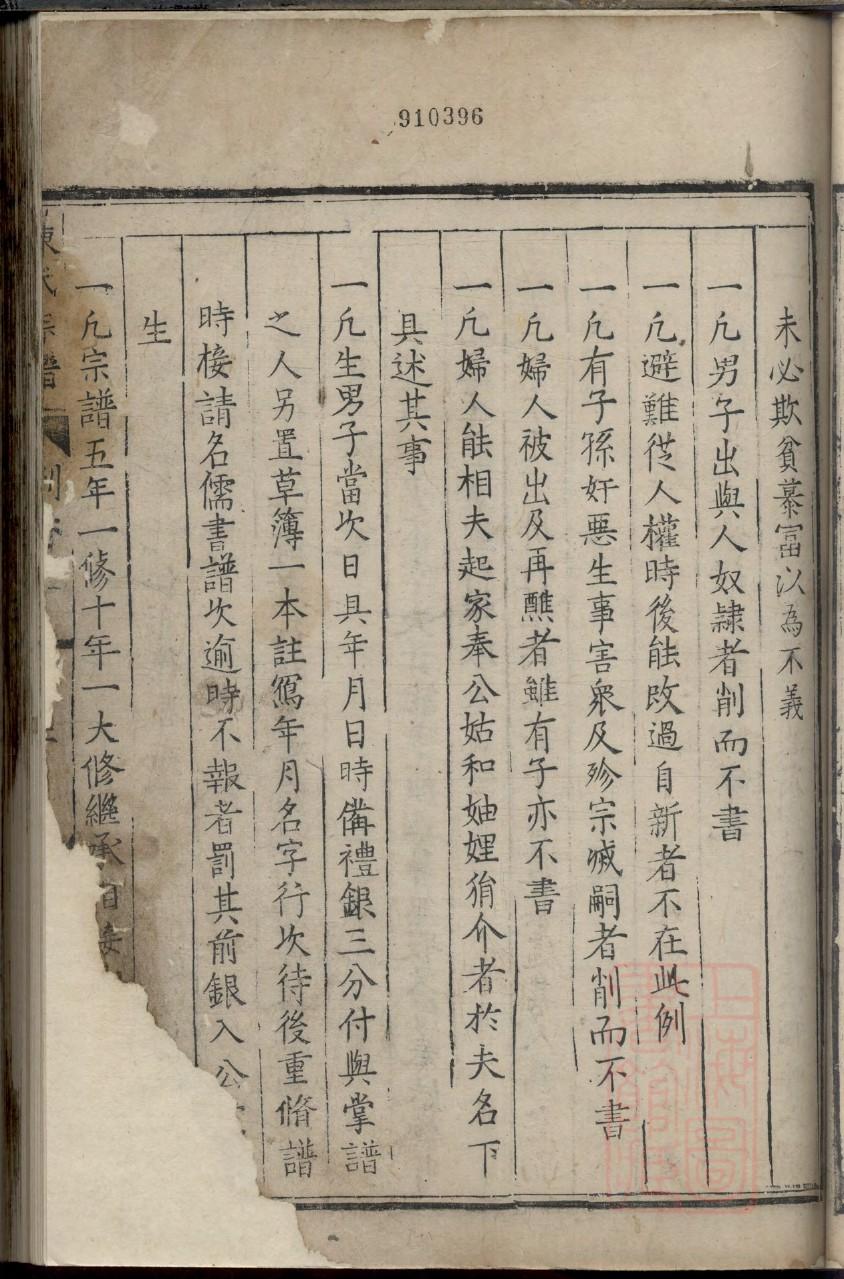 910396
未必欺貧慕富以為不義
一凡男子出與人奴隷者削而不書
一凡避難從人權時後能改過自新者不在此例
一凡有子孫奸惡生事害衆及殄宗滅嗣者削而不書
一凡婦人被出及再醮者雖有子亦不書
一凡婦人能相夫起家奉公姑和妯娌狷介者於夫名下
具述其事
一凡生男子當次日具年月日時備禮銀三分付與掌譜
之人另置草簿一本註寫年月名字行次待後重脩譜
時接請名儒書譜次逾時不報者罰其前銀入公
生
一凡宗譜五年一修十年一大修繼承
陳氏宗譜